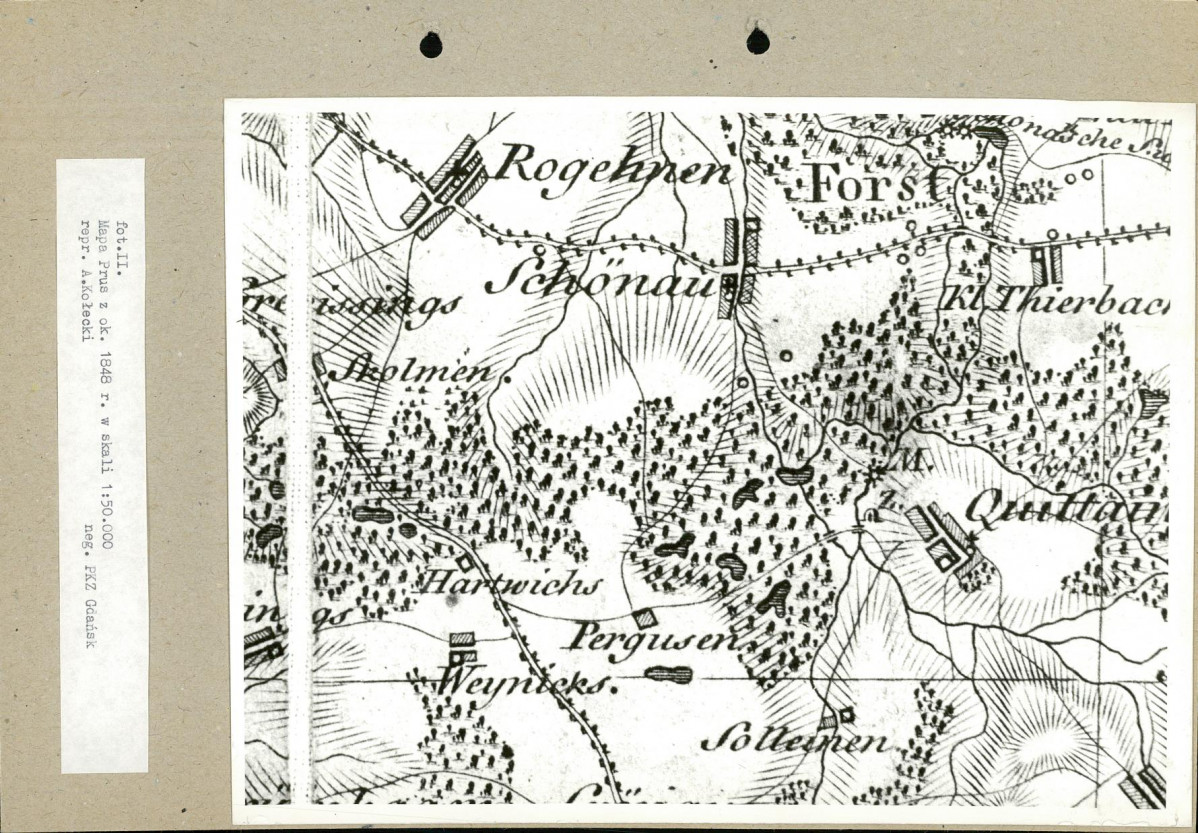 fot.II.
Mapa Prus z ok. 1848 r. w skali 1:50.000
repr. A.Kołecki neg. PKZ Gdańsk
Rogehnen
Forst
Schönau
Kl Thierbach
Skolmen.
M.
Quittain
Hartwichs
Pergusen
Weynicks.
Solleinen